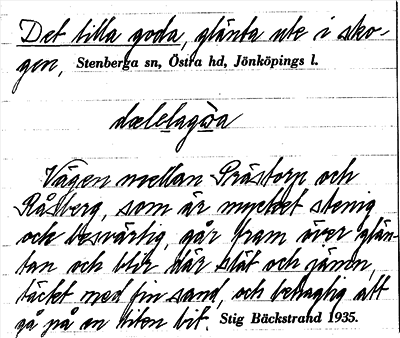 Det lilla goda, glänta ute i sko-
gen, Stenberga sn, Östra hd, Jönköpings l.
Vägen mellan Prästorp och
Råsberg, som är mycket stenig
och besvärlig, går fram över glän-
tan och blir där slät och jämn,
täckt med fin sand, och behaglig att
gå på en liten bit. Stig Bäckstrand 1935.